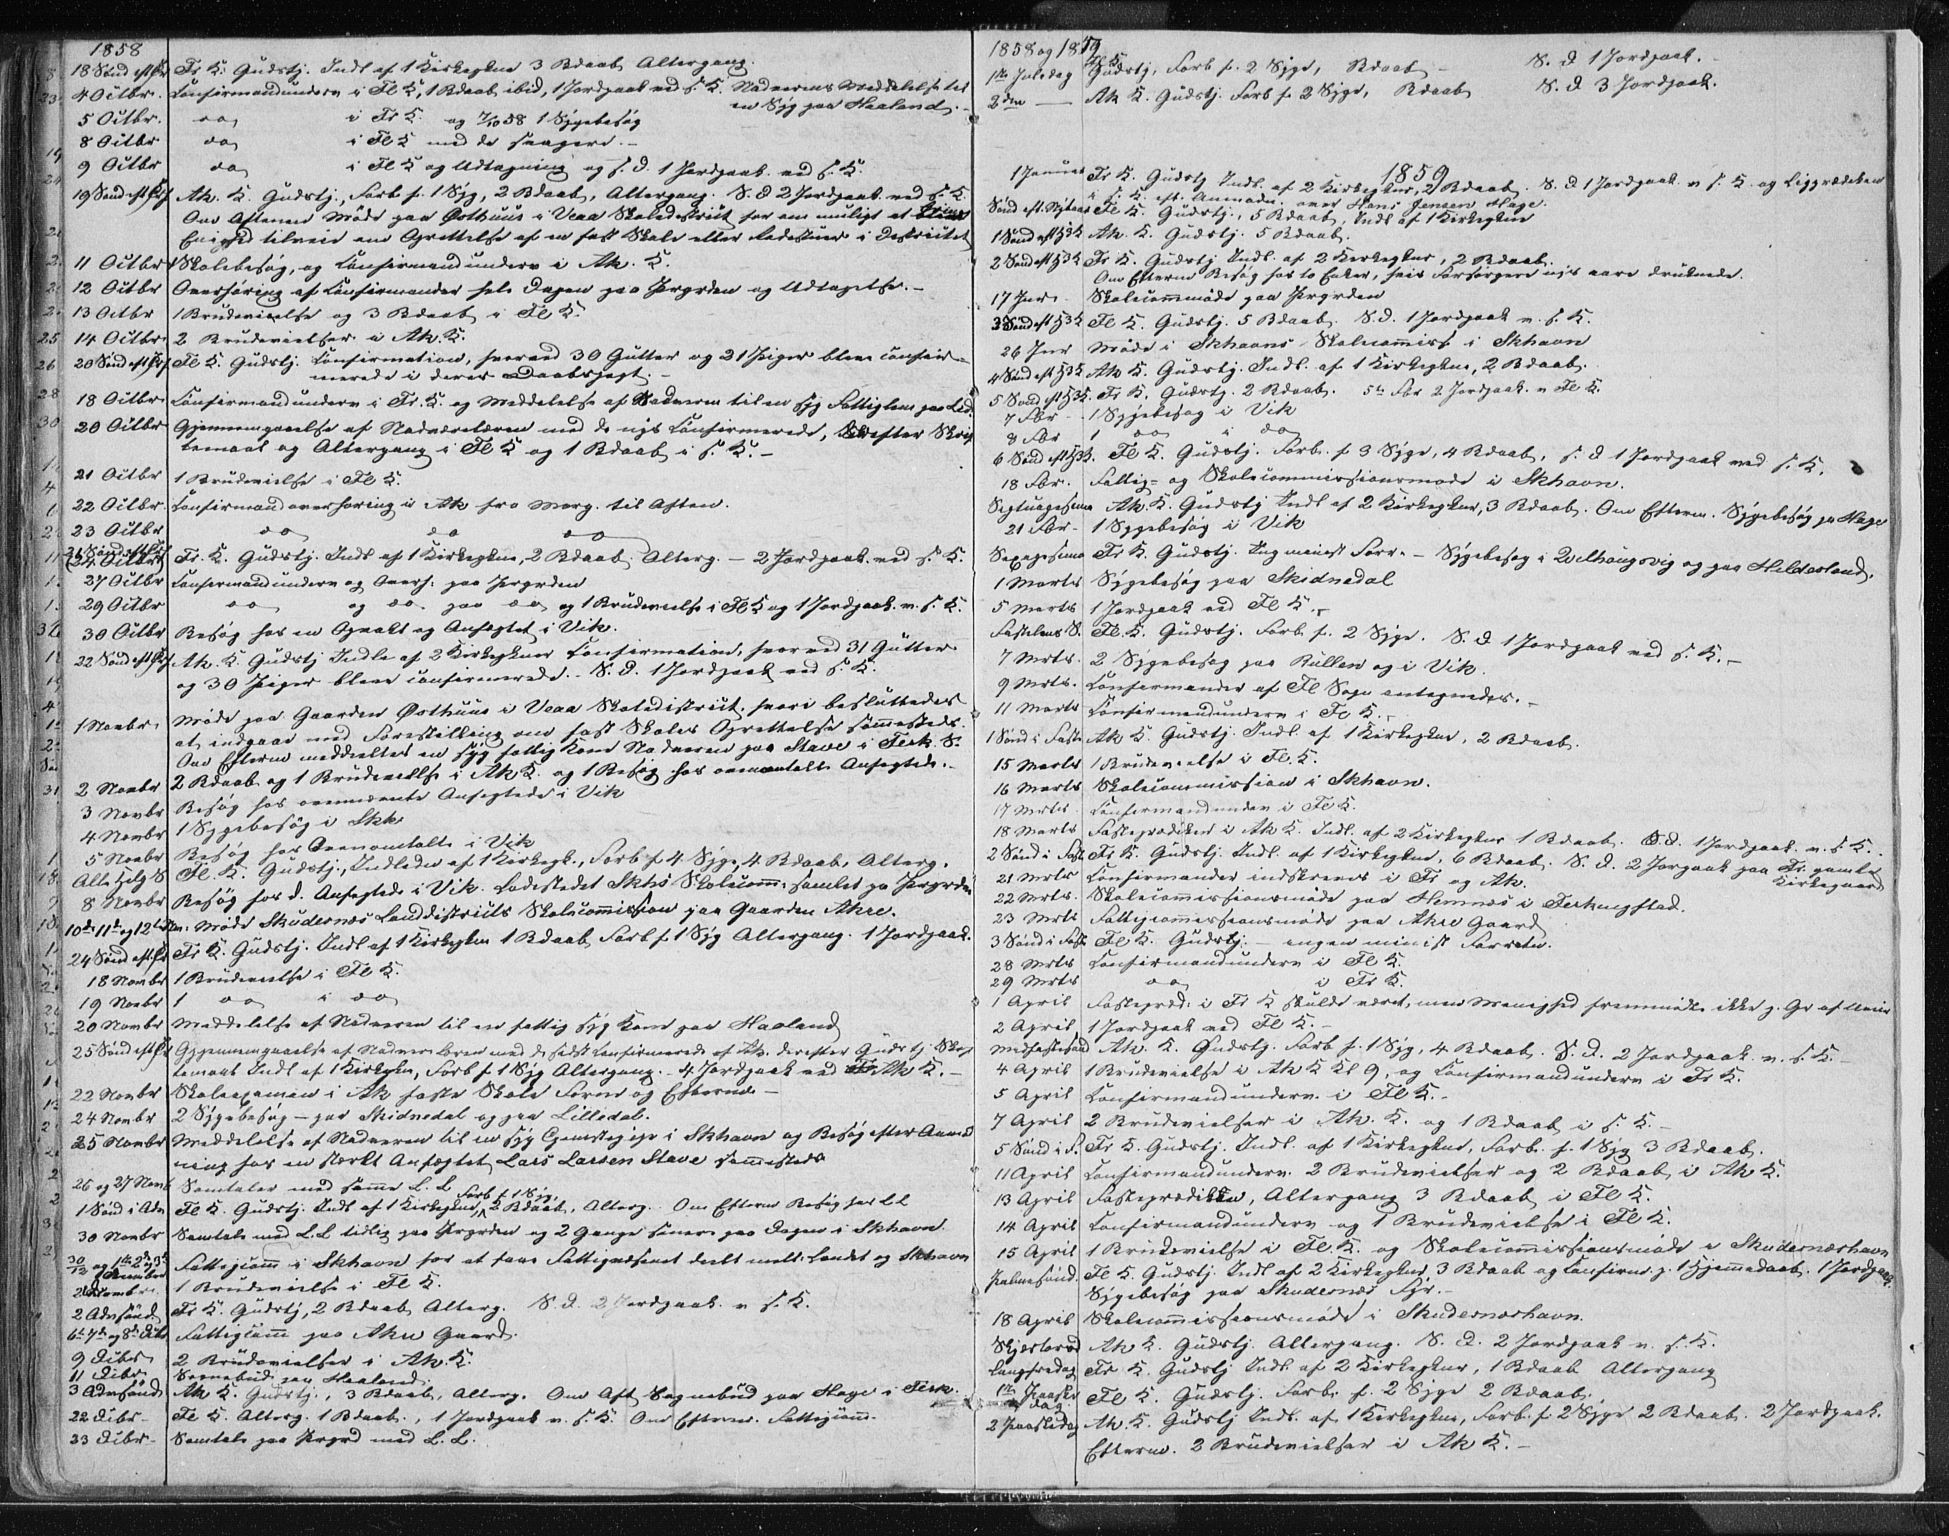 1858
18 Sönd eft Tr Fr K. Gudstj. Indl af 1 Kirkegkne 3 Bdaab Altergang.
4 Octbr. Confirmandunderv i Fl K, 1 Bdaab ibid, 1 Jordpaak ved s. K. Nadverens Meddelelse til
en Syg paa Haaland.
5 Octbr. do i Fr K. og 7/10 58 1 Sygebesøg
8 Octbr do i Fl K med de svagere.
9 Octbr do i Fl K og Udtagning og s. D. 1 Jordpaak. ved s. K.
19 Sönd eft Tr Ak. K. Gudstj., Forb f. 1 Syg, 2 Bdaab, Altergang. S. D 2 Jordpaak ved s. K.
Om Aftenen Møde paa Østhuus i Veaa Skoledistrict for om muligt at bringe
Enighed tilveie om Oprettelse af en fast Skole eller Ledestuer i Districtet
11 Octbr Skolebesøg, og Confirmandunderv i Ak. K.
12 Octbr Overhøring af Confirmander hele Dagen paa Prgrden og Udtagelse.
13 Octbr 1 Brudevielse og 3 Bdaab i Fl K.
14 Octbr 2 Brudevielser i Ak. K.
20 Sönd eft Tr Fl K. Gudstj. Confirmation, hvorved 30 Gutter og 21 Piger bleve confir-
merede i deres Daabspagt.
18 Octbr. Confirmandunderv i Fr. K. og Meddelelse af Nadveren til en syg Fattiglem paa
20 Octbr Gjennemgaaelse af Nadverelæren med de nys Confirmerede, derefter Skrif
temaal og Altergang i Fl K og 1 Bdaab i s. K.
21 Octbr 1 Brudevielse i Fl K.
22 Octbr. Confirmandoverhøring i Ak fra Morg. til Aften.
23 Octbr do do do
21 Sönd eft Tr
(24 Octbr) Fr. K. Gudstj. Indl af 1 Kirkegkne, 2 Bdaab Alterg. – 2 Jordpaak ved s. K.
27 Octbr Confirmandunderv og Overh: paa Prgrden
29 Octbr do og do paa do og 1 Brudevielse i Fl K og 1 Jordpaak. v. s. K.
30 Octbr Besøg hos en Opvakt og Anfægtet i Vik.
22 Sönd eft Tr Ak. K. Gudstj Indle af 2 Kirkegkner Confirmation, hvorved 31 Gutter
og 30 Piger bleve confirmerede. S. D. 1 Jordpaak ved s. K.
1 Novbr. Møde paa Gaarden Østhuus i Veaa Skoledistrict, hvori besluttedes
at indgaae med Forestilling om fast Skoles Oprettelse sammesteds.
Om Efterm meddeltes en syg fattig Kone Nadveren paa Stave i Ferk. S.
2 Novbr 2 Bdaab og 1 Brudevielse i Ak K. og 1 Besøg hos ovenomtalte Anfegtede.
3 Novbr Besøg hos ovennævnte Anfegtede i Vik
4 Novbr 1 Sygebesøg i Skk
5 Novbr Besøg hos Ovenomtalte i Vik
Alle Helg S Fl K. Gudstj., Indleden af 1 Kirkegk., Forb f. 4 Syge, 4 Bdaab, Alterg.
8 Novbr Besøg hos d. Anfegtede i Vik. Ladestedet Skhs Skolecomm: samlet pa Prgrden
10de 11te og 12te Nov: Møde Skudenæs Landdistricts Skolecommission paa Gaarden Akre.
24 Sönd eft Tr Fr K. Gudstj. Indl af 1 Kirkegkne 1 Bdaab, Forb f. 1 Syg Altergang. 1 Jordpaak.
18 Novbr 1 Brudevielse i Fl K.
19 Novbr 1 do i do
20 Novbr Meddelelse af Nadveren til en fattig syg Kone paa Haaland
25 Sönd eft Tr Gjennemgaaelse af Nadverelæren med de sidst Confirmerede af Ak. derefter Gudstj. Skrif
temaal Indl af 1 Kirkegkn, Forb f. 1 Syg Altergang. 4 Jordpaak ved Ak K.
22 Novbr Skoleexamen i Ak faste Skole Form og Efterm.
24 Novbr 2 Sygebesøg – paa Skidnedal og paa Lilledal.
25 Novbr Meddelelse af Nadveren til en syg i Skhavn og Besøg efter Anmod
ning hos en stærkt Anfægtet, Lars Larsen Stave sammesteds
26 og 27 Novb Samtaler med samme L. L.
Forb f. 1 Syg,
1 Sönd i Adv Fl K. Gudstj. Indl af 1 Kirkegkne, 2 Bdaab, Alterg. Om Efterm Besøg hos LL
30 Novbr Samtale med L.L tidlig paa Prgrden og 2 Gange senere paa Dagen i Skhavn
Fattigcom i Skhavn for at faae Fattigvæsenet deelt mell. Landet og Skhavn
2 Decembr. 1 Brudevielse i Fl K.
2 Advsönd Fr K. Gudstj, 2 Bdaab Alterg. S. D. 2 Jordpaak v s. K.
6te 7de og 8de Dcbr Fattigcom paa Akre Gaard.
9 Dcbr 2 Brudevielser i Ak. K.
11 Dcbr. Sognebud paa Haaland.
3 Advsönd Ak K. Gudstj., 3 Bdaab, Alterg. Om Aft Sognebud paa Hage i Ferk.
22 Dcbr Fl K. Alterg. 1 Bdaab., 1 Jordpaak v. s. K. Om Efterm. Fattigcom.
23 Dcbr Samtale paa Prgrd med L. L.
1858 og 1859
1ste Juledag Fl K Gudstj, Forb f. 2 Syge, Bdaab S. D 1 Jordpaak.
2den — Ak K. Gudstj. Forb f. 2 Syge, Bdaab S. D 3 Jordpaak.
1859
1 Januar Fr K. Gudstj Indl. af 2 Kirkegkner, 2 Bdaab. S. D 1 Jordpaak v s. K. og Ligprædiken
i s K. eft. Anmodn. over Hans Jensen Hage.
Sönd eft. Nytaar Fl K. Gudstj., 5 Bdaab, Indl af 1 Kirkegkne
1 Sönd eft H3K Ak. K. Gudstj. 5 Bdaab.
2 Sönd eft H3K Fr K. Gudstj Indl. af 2 Kirkegkner, 2 Bdaab.
Om Efterm Besøg hos to Enker, hvis Forsørgere nys vare druknede.
17 Jnr. Skolecommøde paa Prgrden
3 Sönd eft H3K Fl K. Gudstj. 5 Bdaab. S.D. 1 Jordpaak v. s. K.
26 Jnr Møde i Skhavns Skolecommiss i Skhavn
4 Sönd eft H3K Ak K. Gudstj. Indl. af 1 Kirkegkne, 2 Bdaab.
5 Sönd eft H3K. Fr K. Gudstj. 2 Bdaab. 5te Fbr 2 Jordpaak. v Fl K.
7 Fbr 1 Sygebesøg i Vik
8 Fbr 1 do i do
6 Sönd eft H3K. Fl K. Gudstj. Forb. f 3 Syge, 4 Bdaab, s. D 1 Jordpaak ved s. K.
18 Fbr. Fattig- og Skolecommissionsmøde i Skhavn.
Septuagesima Ak K. Gudstj Indl af 2 Kirkegkner, 3 Bdaab. Om Efterm. Sygebesøg pa Hage
21 Fbr. 1 Sygebesøg i Vik
Sexagesima Fr K. Gudstj. Ing minist Forr. – Sygebesøg i Vilhougsvig og paa Hilderland.
1 Marts Sygebesøg paa Skidnedal
5 Marts 1 Jordpaak ved Fl K.
Fastelavns S. Fl K. Gudstj. Forb. f. 2 Syge. S. D 1 Jordpaak ved s. K.
7 Mrts. 2 Sygebesøg paa Kullen og i Vik.
9 Mrts. Confirmander af Fl Sogn antegnedes.
11 Marts Confirmandunderv i Fl K.
1 Sönd i Faste Ak K. Gudstj. Indl. af 1 Kirkegkne, 2 Bdaab.
15 Marts 1 Brudevielse i Fl K.
16 Marts Skolecommission i Skhavn.
17 Mrts. Confirmandunderv i Fl K.
18 Marts Fasteprædiken i Ak K. Indl. af 2 Kirkegkner 1 Bdaab. S.D. 1 Jordpaak v. s K.
2 Sönd i Fast Fr K. Gudstj. Indl. af 1 Kirkegkne, 6 Bdaab. S. D. 2 Jorpaak paa Fr. gamle
Kirkegaard
21 Mrts Confirmander indskreves i Fr og Ak.
22 Mrts. Skolecommissionsmøde paa Hemnæs i Ferkingstad.
23 Mrts Fattigcommissionsmøde paa Akre Gaard
3 Sönd i Fast Fl K. Gudstj. – ingen minist Forretn.
28 Mrts Confirmandunderv i Fl K.
29 Mrts do i Fr K.
1 April Fastepræd: i Fr K skulde været, men Menighed fremmødte ikke p. Gr af Uveir
2 April 1 Jordpaak ved Fl K.
Midfastesönd Ak. K. Gudstj. Forb f. 1 Syg, 4 Bdaab. S. D. 2 Jordpaak. v. s. K.
4 April 1 Brudevielse i Ak K Kl 9, og Confirmandunderv i Fr K.
5 April Confirmandunderv. i Fl K.
7 April 2 Brudevielser i Ak. K. og 1 Bdaab i s. K.
5 Sönd i F. Fr K. Gudstj. Indl. af 1 Kirkegkne, Forb. f. 1 Syg 3 Bdaab.
11 April Confirmandunderv. 2 Brudevielser og 2 Bdaab i Ak K.
13 April Fasteprædiken, Altergang 3 Bdaab i Fl K.
14 April Confirmandunderv og 1 Brudevielse i Fl K.
15 April 1 Brudevielse i Fl K. og Skolecommissionsmøde i Skudenæshavn
Palmesönd. Fl K. Gudstj. Indl af 2 Kirkegkner 3 Bdaab og Confirm. p. 1 Hjemmedaab. 1 Jordpaak.
Sygebesøg paa Skudenæs Fyr.
18 April Skolecommissionsmøde i Skudenæshavn.
Skjærtorsd Ak K. Gudstj. Altergang. S. D. 2 Jordpaak v. s. K.
Langfredag Fr K. Gudstj Indl. af 2 Kirkegkner, 1 Bdaab Altergang
1ste Paaske
dag Fl K. Gudstj. Forb. f. 2 Syge 2 Bdaab.
2 Paaskedag Ak. K. Gudstj Indl. af 1 Kirkegkne, Forb. f. 2 Syge 2 Bdaab. 2 Jordpaak.
Efterm. 2 Brudevielser i Ak K.